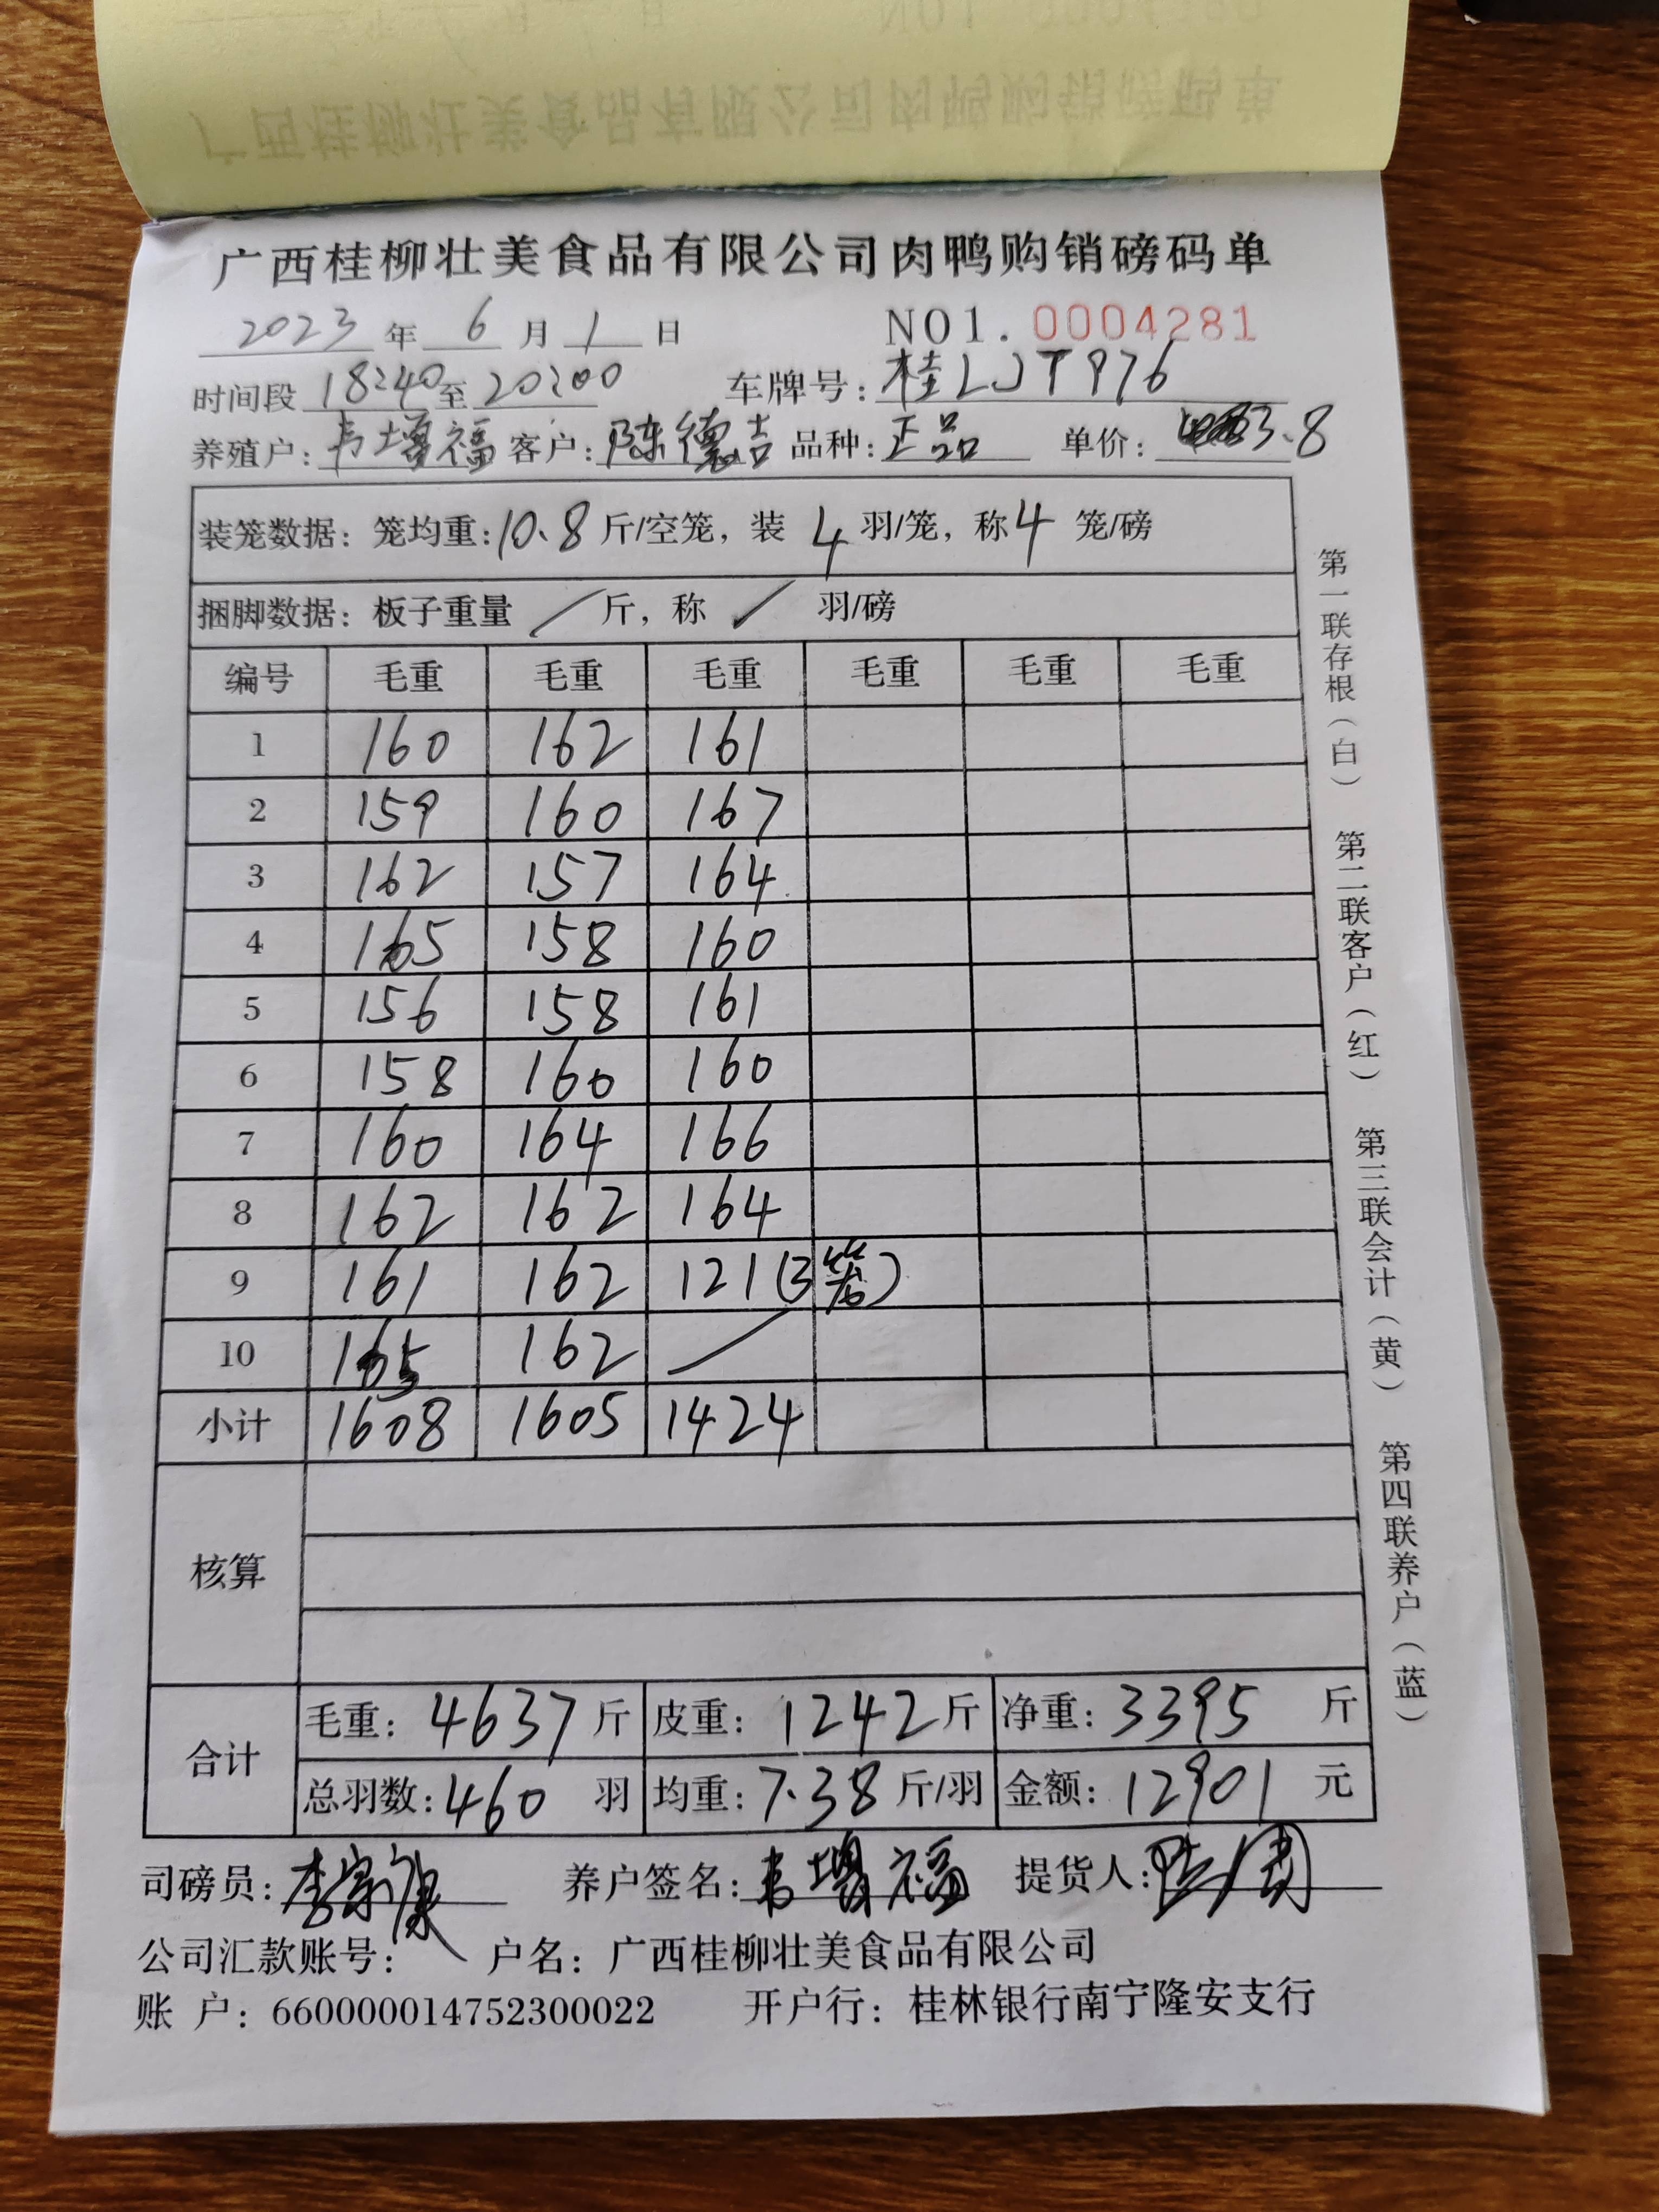 广西桂柳壮美食品有限公司肉鸭购销磅码单
2023 年 6 月 1 日 NO1. 0004281
时间段 18:40 至 20:00 车牌号: 桂LJT976
养殖户: 韦增福 客户: 陈德吉 品种: 正品 单价: 3.8
装笼数据: 笼均重: 10.8 斤/空笼, 装 4 羽/笼, 称 4 笼/磅
捆脚数据: 板子重量 / 斤, 称 / 羽/磅
编号 毛重 毛重 毛重 毛重 毛重 毛重
1 160 162 161
2 159 160 167
3 162 157 164
4 165 158 160
5 156 158 161
6 158 160 160
7 160 164 166
8 162 162 164
9 161 162 121(3笼)
10 165 162 /
小计 1608 1605 1424
核算
合计
毛重: 4637 斤 皮重: 1242 斤 净重: 3395 斤
总羽数: 460 羽 均重: 7.38 斤/羽 金额: 12901 元
司磅员: 李宗康 养户签名: 韦增福 提货人:
公司汇款账号: 户名: 广西桂柳壮美食品有限公司
账 户: 660000014752300022 开户行: 桂林银行南宁隆安支行
第一联存根(白) 第二联客户(红) 第三联会计(黄) 第四联养户(蓝)